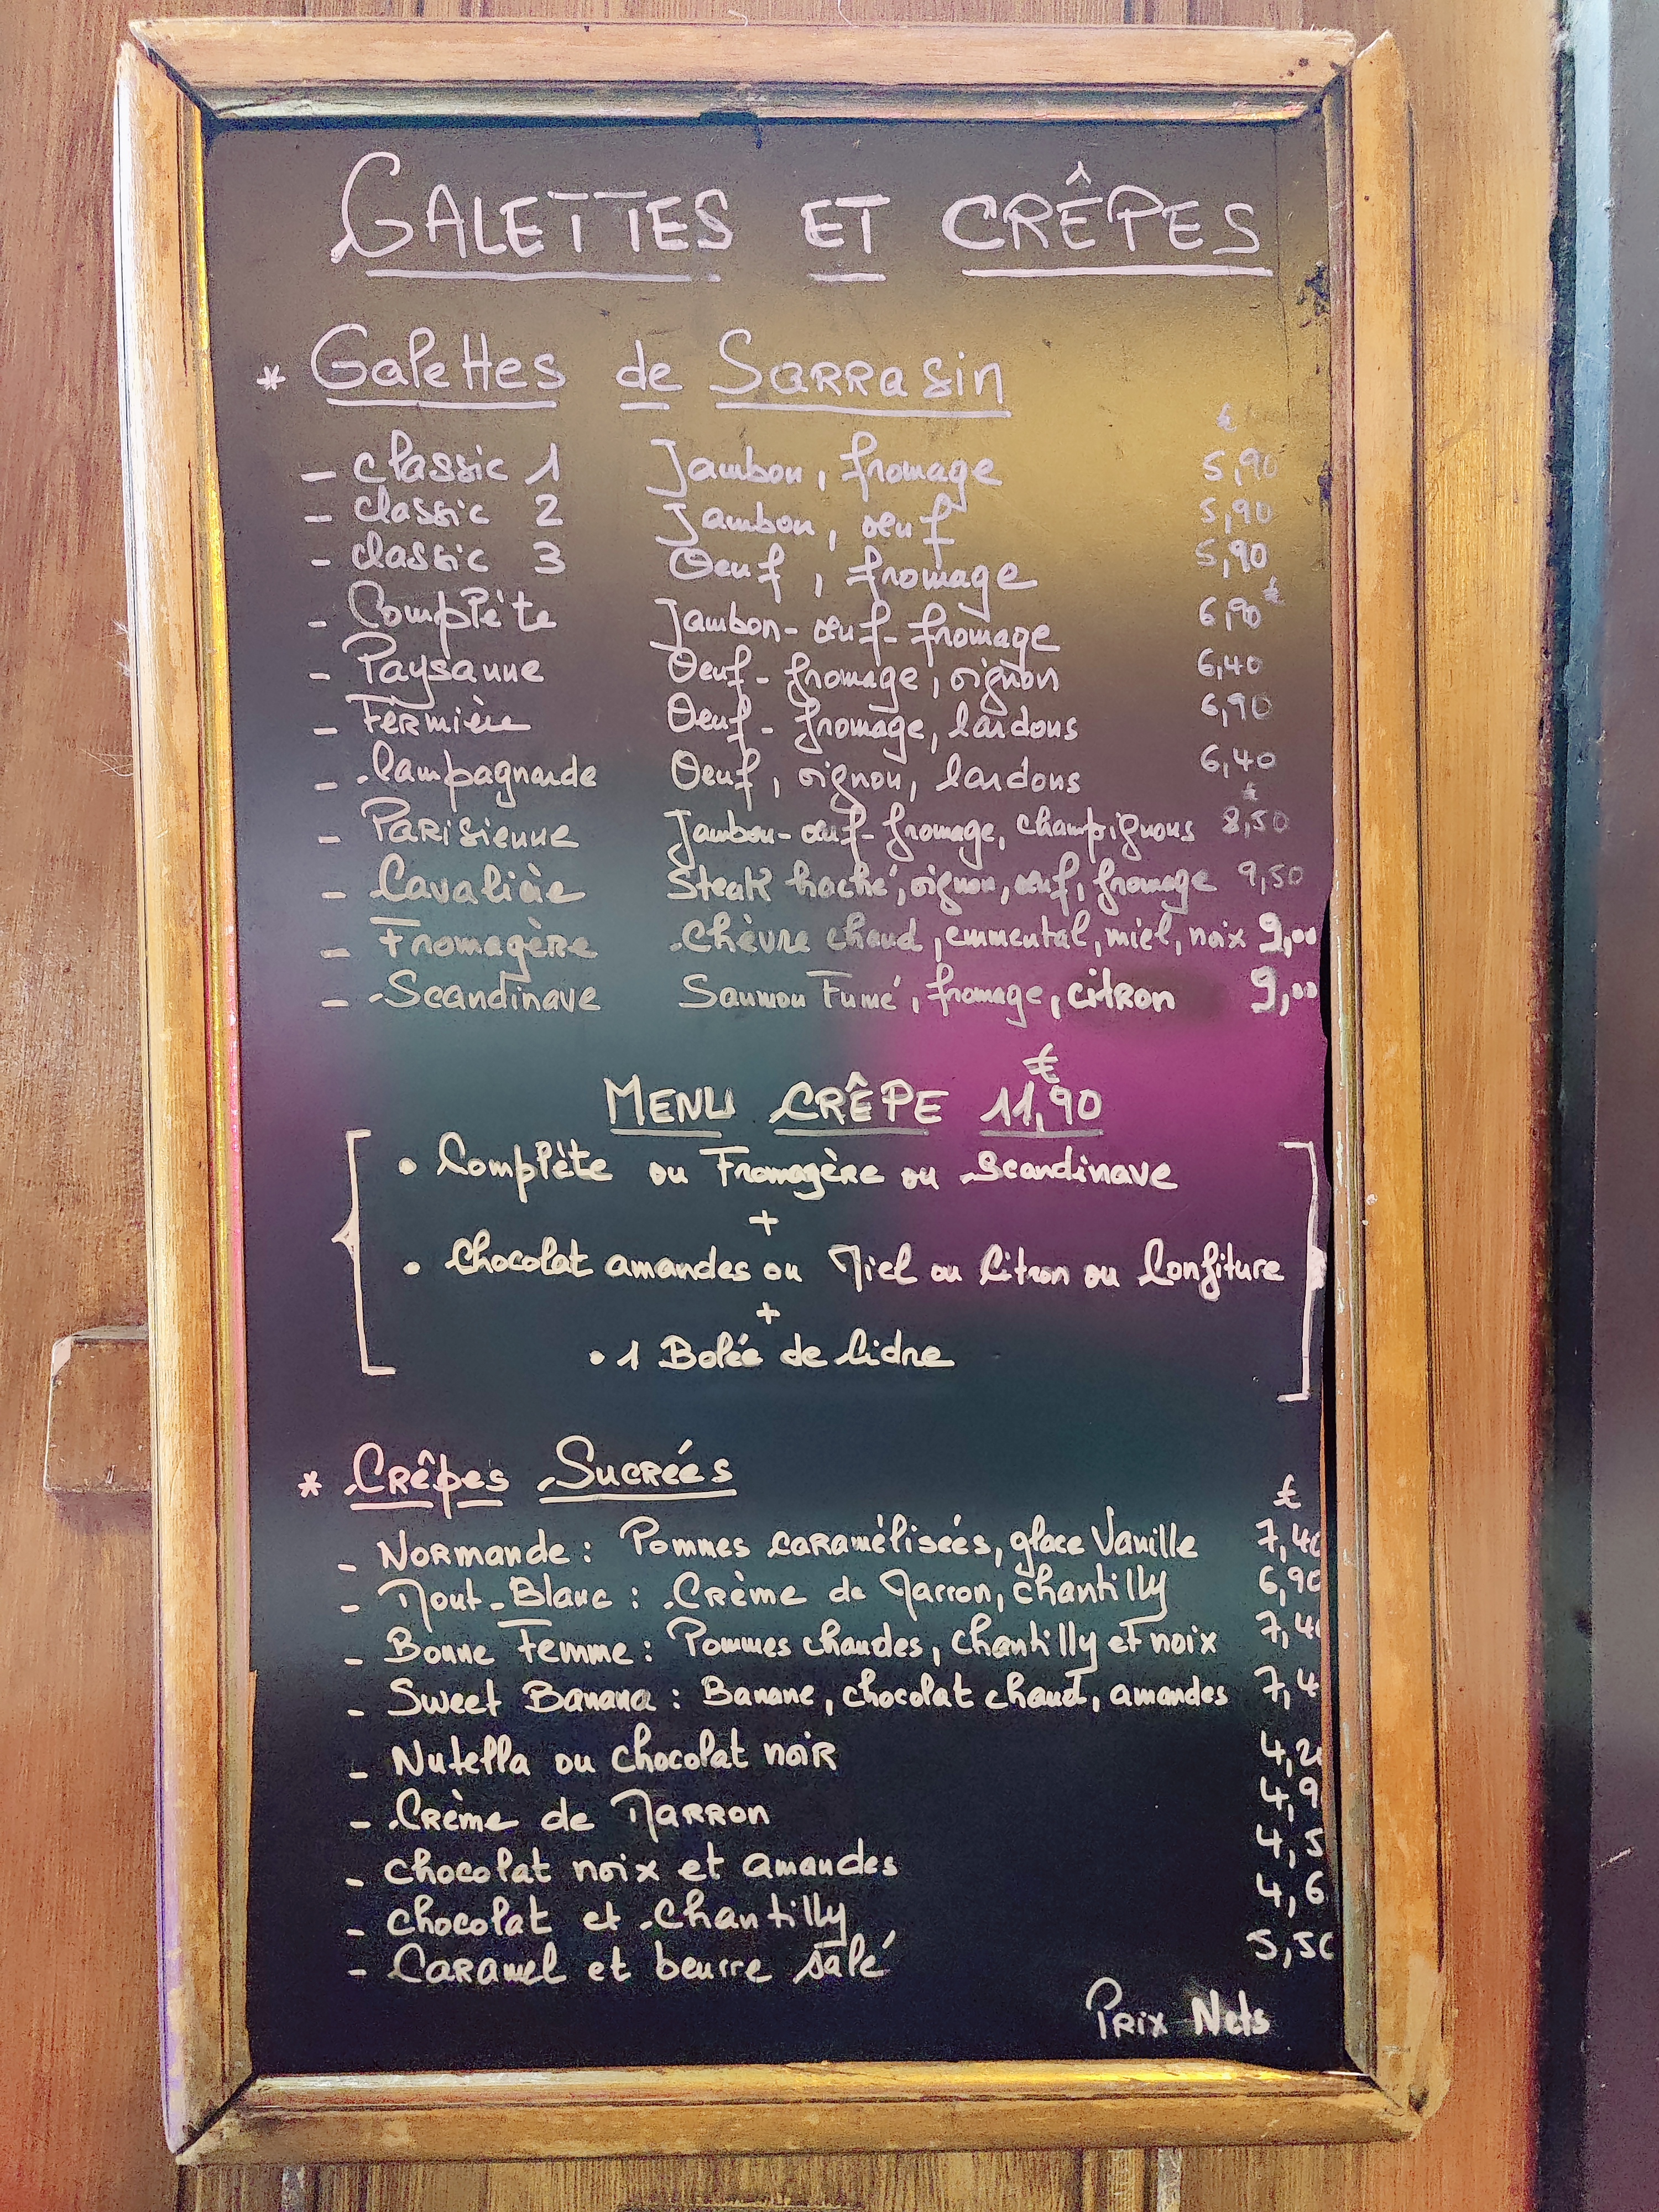 GALETTES ET CRÊPES
* Galettes de Sarrasin
€
- Classic 1 Jambon, fromage 5,90
- Classic 2 Jambon, œuf 5,90
- Classic 3 Oeuf, fromage 5,90
- Complète Jambon-œuf-fromage 6,90€
- Paysanne Oeuf-fromage, oignon 6,40
- Fermière Oeuf-fromage, lardons 6,90
- Campagnarde Oeuf, oignon, lardons 6,40
€
- Parisienne Jambon-œuf-fromage, champignons 8,50
- Cavalière Steak haché, oignon, œuf, fromage 9,50
- Fromagère Chèvre chaud, emmental, miel, noix 9,00
- Scandinave Saumon Fumé, fromage, citron 9,00
MENU CRÊPE 11,90€
• Complète ou Fromagère ou Scandinave
+
• Chocolat amandes ou Miel ou Citron ou Confiture
+
• 1 Bolée de Cidre
* Crêpes Sucrées
€
- Normande : Pommes caramélisées, glace Vanille 7,40
- Mont-Blanc : Crème de Marron, chantilly 6,90
- Bonne Femme : Pommes chaudes, chantilly et noix 7,40
- Sweet Banana : Banane, chocolat chaud, amandes 7,4
- Nutella ou chocolat noir 4,20
- Crème de Marron 4,9
- chocolat noix et amandes 4,5
- chocolat et chantilly 4,6
- Caramel et beurre salé 5,50
Prix Nets